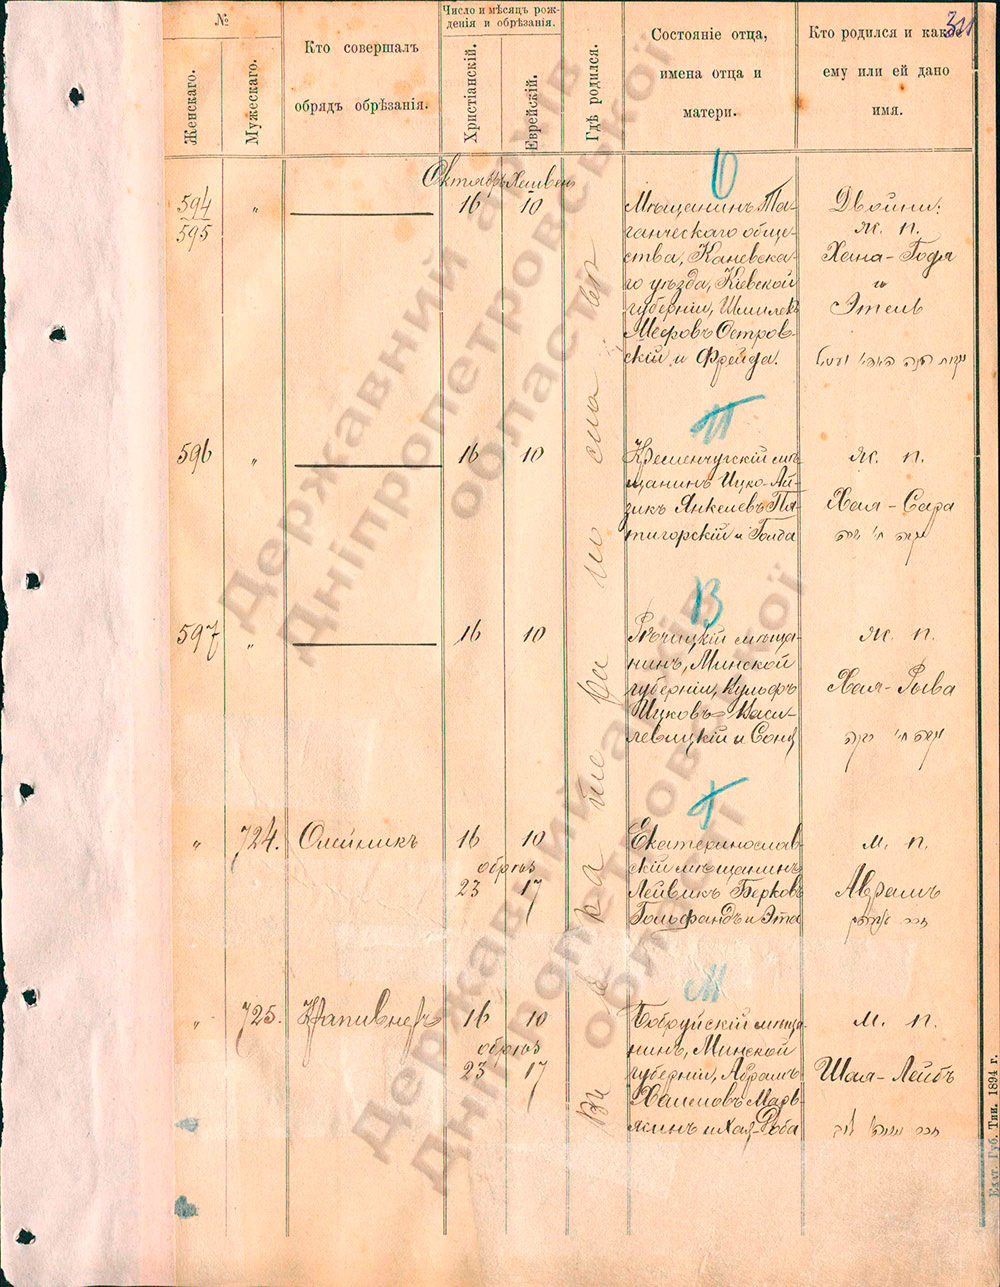 №
Женскаго.
Мужескаго.
Кто совершалъ
обрядъ обрѣзанія.
Число и мѣсяцъ рож-
денія и обрѣзанія.
Христіанскій.
Еврейскій.
Гдѣ родился.
Состояніе отца,
имена отца и
матери.
Кто родился и како
ему или ей дано
имя.
Октябрь Хешвен
594
595
"
16
10
О
Мѣщанинъ Та-
ганческаго обще-
ства, Каневска-
го уѣзда, Кіевской
губерніи, Шмилекъ
Меѣровъ Остров-
скій и Фрейда.
Двойни:
ж. п.
Хана-Годя
и
Этель
596
"
16
10
П
Кременчугскій мѣ-
щанинъ Ицко-Ай-
зикъ Янкелевъ Пя-
тигорскій и Голда
ж. п.
Хая-Сара
597
"
16
10
В
Рѣчицкій мѣща-
нинъ, Минской
губерніи, Кульфъ
Ицковъ Васи-
левицкій и Соня
ж. п.
Хая-Рыва
"
724.
Олейникъ
16
10
обрѣз
23
17
Г
Екатеринослав-
скій мѣщанинъ
Лейвикъ Берковъ
Гольфандъ и Эта
м. п.
Абрамъ
"
725.
Капивнеръ
16
10
обрѣз
23
17
М
Бобруйскій мѣща-
нинъ, Минской
губерніи, Абрамъ
Хаимовъ Марь-
яхинъ и Хая-Роба
м. п.
Шая-Лейбъ
Екат. Губ. Тип. 1894 г.
Державний архів
Дніпропетровської
області
Державний архів
Дніпропетровської
області